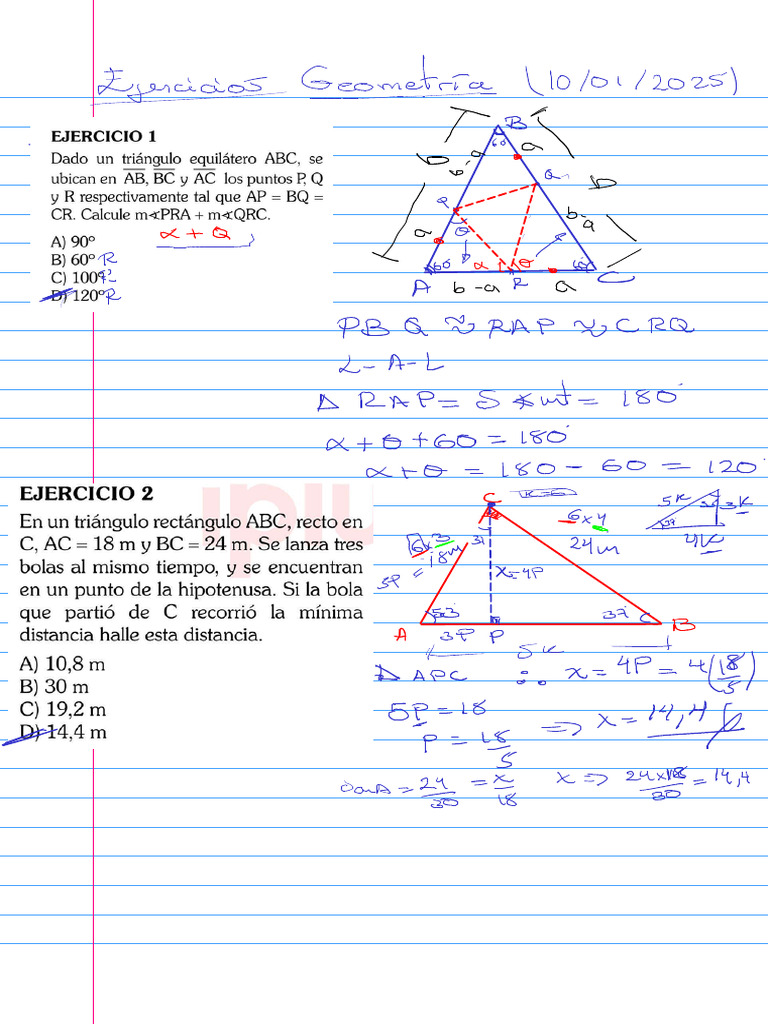 Ejercicios Geometría (10/01/2025)
EJERCICIO 1
Dado un triángulo equilátero ABC, se
ubican en AB, BC y AC los puntos P, Q
y R respectivamente tal que AP = BQ =
CR. Calcule m∢PRA + m∢QRC.
α + θ
A) 90º
B) 60º R
C) 100º
D) 120º R
B
60
b
b-a
a
Q
b
P
θ
a
b-a
60
α
θ
60
A
b-a
R
a
C
PBQ ≈ RAP ≈ CRQ
L-A-L
Δ RAP = S ∢ int = 180°
α + θ + 60 = 180°
α + θ = 180 - 60 = 120°
EJERCICIO 2
ipiu
En un triángulo rectángulo ABC, recto en
C, AC = 18 m y BC = 24 m. Se lanza tres
bolas al mismo tiempo, y se encuentran
en un punto de la hipotenusa. Si la bola
que partió de C recorrió la mínima
distancia halle esta distancia.
A) 10,8 m
B) 30 m
C) 19,2 m
D) 14,4 m
C
K=6
6x4
24m
5K
3K
37
4K
6x3
18m
5P =
37
x=4P
53
37
A
3P
P
B
5K
Δ APC
∴ x = 4P = 4(18/5)
5P = 18
P = 18/5
⇒ x = 14,4
SenA = 24/30 = x/18
x ⇒ 24x18/30 = 14,4